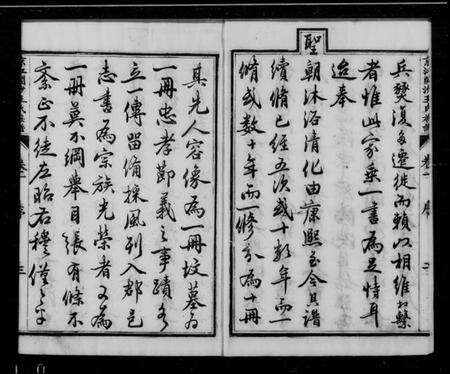 兵燹復多遷徙而賴以相維相繫
者惟此家乘一書爲足恃耳
迨奉
聖
朝沐浴清化由康熙至今其譜
續脩已經五次或十數年而一
脩或數十年而一修分爲十冊
其先人容像爲一冊坟墓爲
一冊忠孝節義之事蹟為
立一傳留備採風列入郡邑
志書為宗族光榮者又為
一冊莫不綱舉目張有條不
紊正不徒左昭右穆僅之乎
卷一 序 二
卷一 序 三